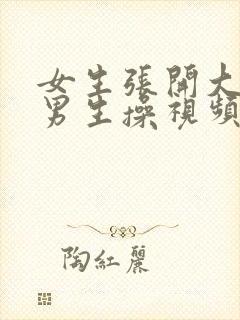 女生張開大
男生操視頻
陶紅麗